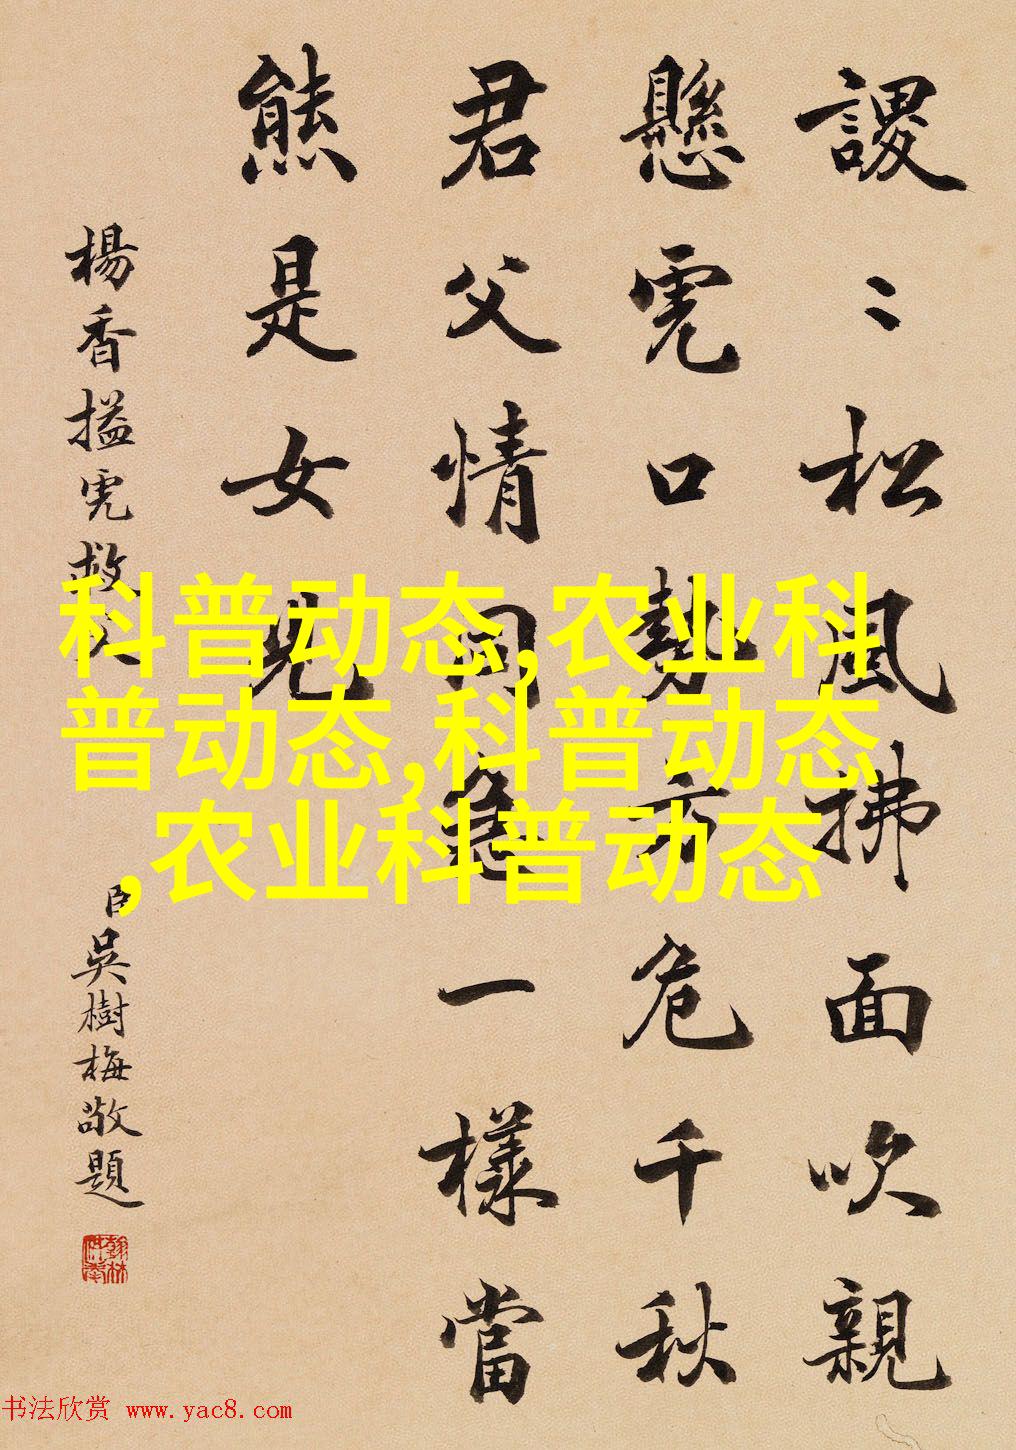 謖〻松風拂面吹親
懸虎口勢方危千秋
君父情同急一樣當
熊是女兒
楊香搤虎救父
臣吳樹梅敬題
翰林供奉
科普动态,农业科
普动态,科普动态
,农业科普动态
书法欣赏 www.yac8.com